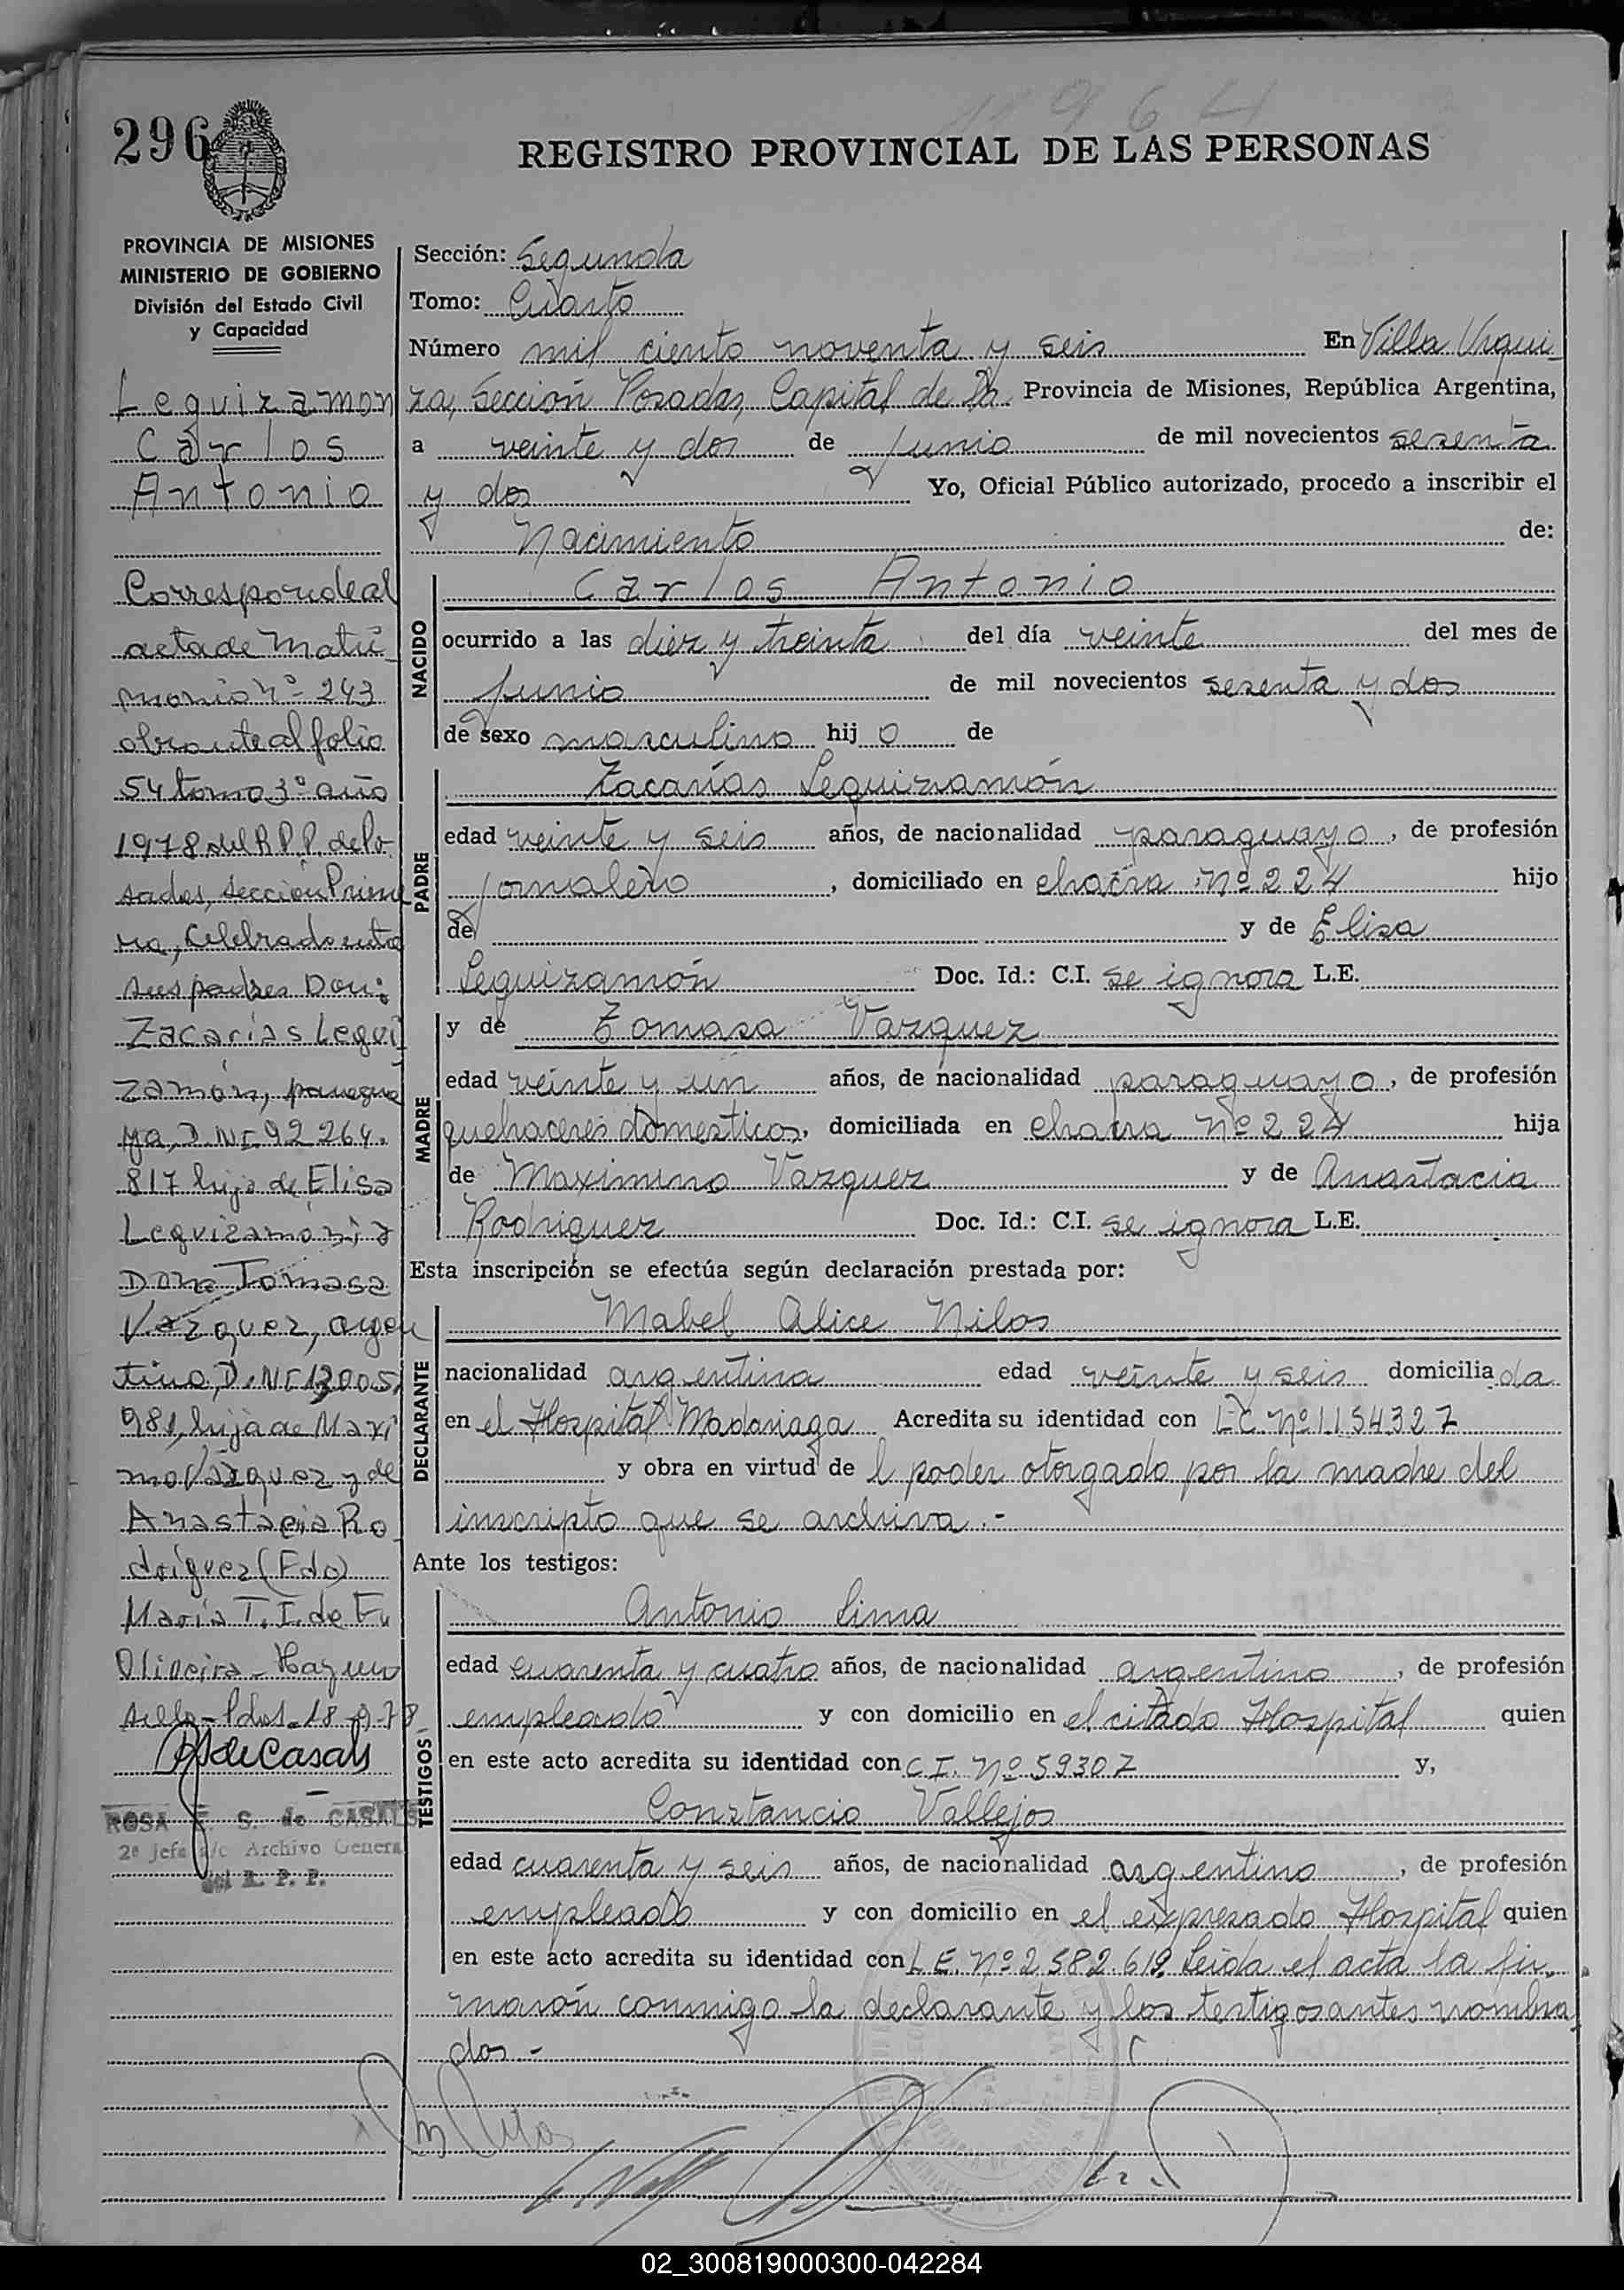 296
REGISTRO PROVINCIAL DE LAS PERSONAS
PROVINCIA DE MISIONES
MINISTERIO DE GOBIERNO
División del Estado Civil
y Capacidad
Leguizamon
Carlos
Antonio
Corresponde al
acta de Matri
monio nº 243
obrante al folio
54 tomo 3º año
1978 del R.P.P. de Po
sadas, sección Prime
ra, celebrado entre
sus padres Don:
Zacarías Legui
zamón, paragua
yo, D.N.I. 92 264.
817 hijo de Elisa
Leguizamón; y
Doña Tomasa
Vazquez, argen
tina, D.N.I 12005.
981, hija de Maxi
mo Vázquez y de
Anastacia Ro
dríguez (Fdo)
María T. I. de F.
Oliveira - Hay un
sello - Pdas. 18-9-78
ROSA F. S. de CASALS
2ª Jefa a/c Archivo General
del R. P. P.
Sección: Segunda
Tomo: Cuarto
Número mil ciento noventa y seis En Villa Urqui
za, Sección Posadas, Capital de la Provincia de Misiones, República Argentina,
a veinte y dos de Junio de mil novecientos sesenta
y dos Yo, Oficial Público autorizado, procedo a inscribir el
Nacimiento de:
NACIDO
Carlos Antonio
ocurrido a las diez y treinta del día veinte del mes de
Junio de mil novecientos sesenta y dos
de sexo masculino hij o de
PADRE
Zacarías Leguizamón
edad veinte y seis años, de nacionalidad paraguayo, de profesión
Jornalero, domiciliado en chacra Nº 224 hijo
de y de Elisa
Leguizamón Doc. Id.: C.I. se ignora L.E.
MADRE
y de Tomasa Vazquez
edad veinte y un años, de nacionalidad paraguayo, de profesión
quehaceres domesticos, domiciliada en chacra Nº 224 hija
de Maximino Vazquez y de Anastacia
Rodriguez Doc. Id.: C.I. se ignora L.E.
Esta inscripción se efectúa según declaración prestada por:
DECLARANTE
Mabel Alice Nilos
nacionalidad argentina edad veinte y seis domicilia da
en el Hospital Madariaga Acredita su identidad con L.C. Nº 1.154.327
y obra en virtud de l poder otorgado por la madre del
inscripto que se archiva.-
Ante los testigos:
TESTIGOS
Antonio Lima
edad cuarenta y cuatro años, de nacionalidad argentino, de profesión
empleado y con domicilio en el citado Hospital quien
en este acto acredita su identidad con C.I. Nº 59307 y,
Constancio Vallejos
edad cuarenta y seis años, de nacionalidad argentino, de profesión
empleado y con domicilio en el expresado Hospital quien
en este acto acredita su identidad con L.E. Nº 2.582.619. Leida el acta la fir
maron conmigo la declarante y los testigos antes nombra
dos.-
02_300819000300-042284